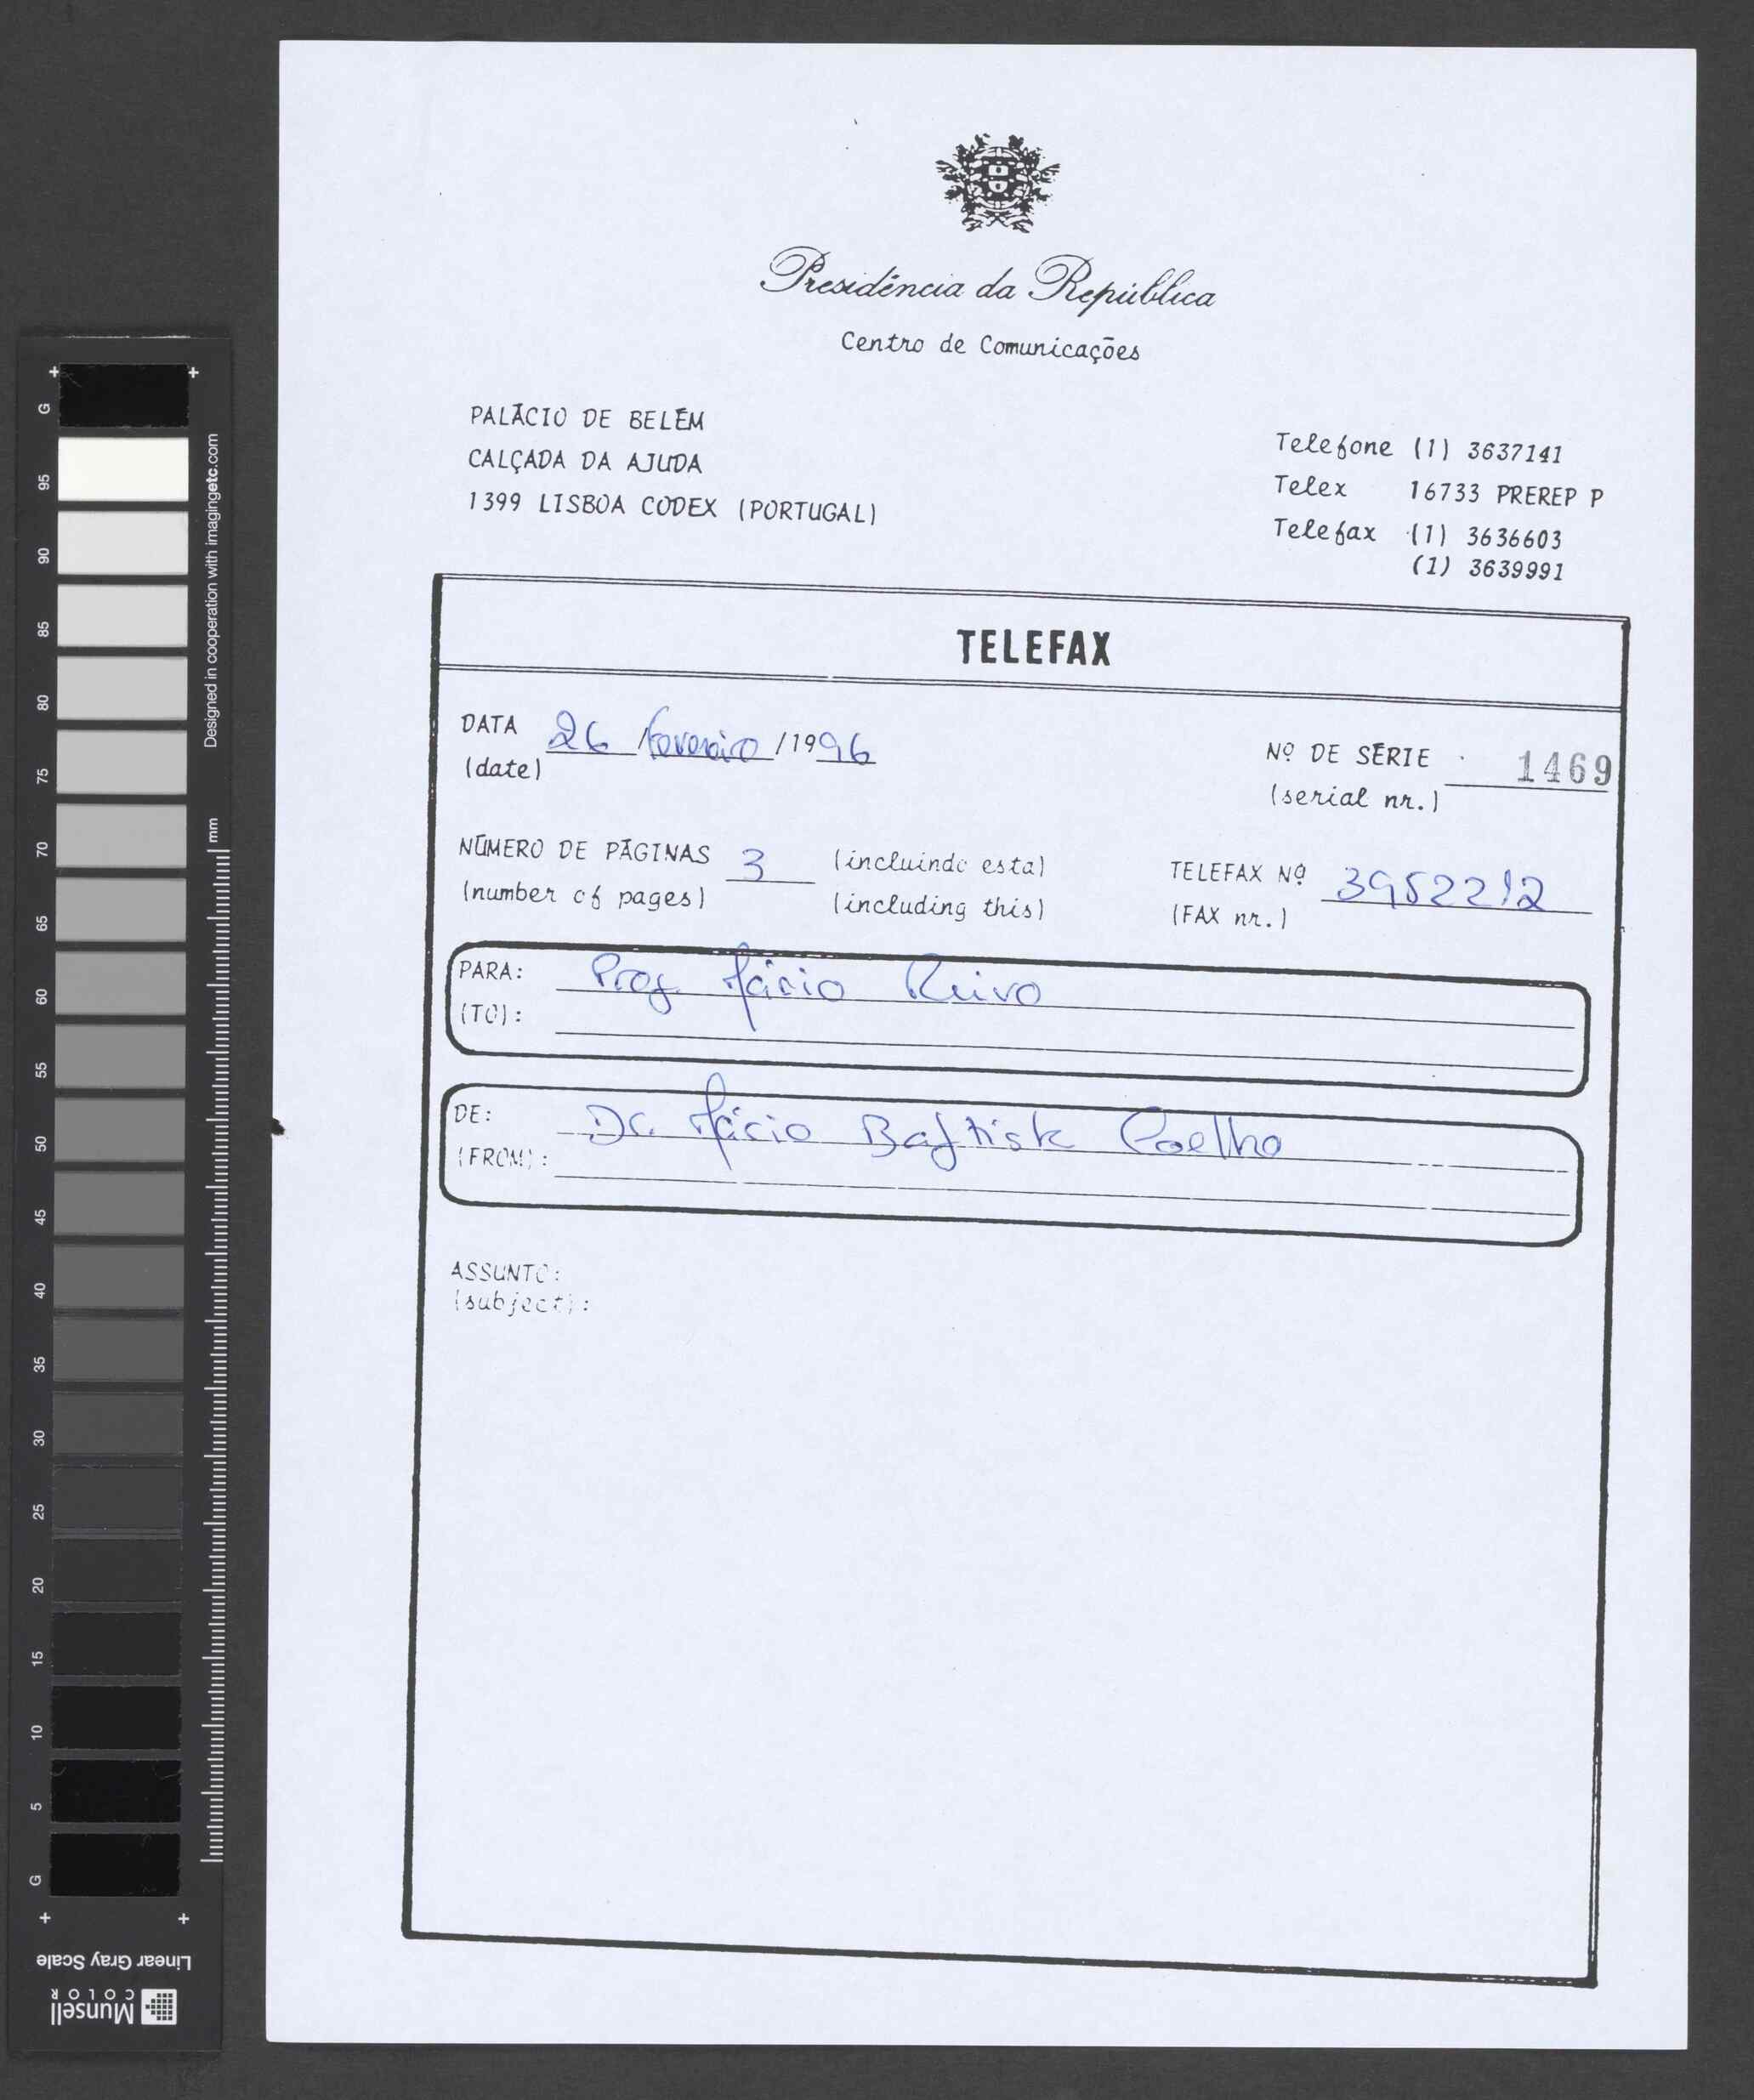 Presidência da República
Centro de Comunicações
PALÁCIO DE BELÉM
CALÇADA DA AJUDA
1399 LISBOA CODEX (PORTUGAL)
Telefone (1) 3637141
Telex 16733 PREREP P
Telefax (1) 3636603
(1) 3639991
TELEFAX
DATA 26 / fevereiro / 1996
(date)
Nº DE SÉRIE 1469
(serial nr.)
NÚMERO DE PÁGINAS 3 (incluindo esta)
(number of pages) (including this)
TELEFAX Nº 3952212
(FAX nr.)
PARA: Prof Mário Ruivo
(TO):
DE: Dr. Mário Baptista Coelho
(FROM):
ASSUNTO:
(subject):
G 95 90 85 80 75 70 65 60 55 50 45 40 35 30 25 20 15 10 5 G
Designed in cooperation with imagingetc.com
mm
Linear Gray Scale
Munsell
COLOR